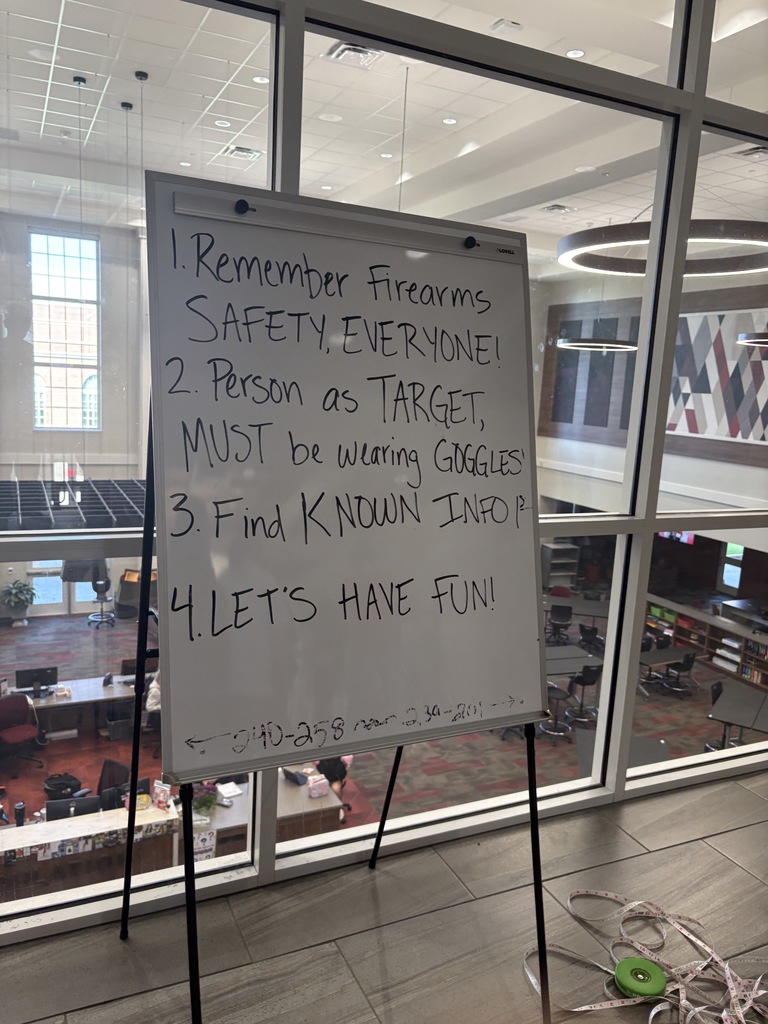 1. Remember Firearms
SAFETY, EVERYONE!
2. Person as TARGET,
MUST be wearing GOGGLES
3. Find KNOWN INFO
4. LET'S HAVE FUN!
← 240-258 →